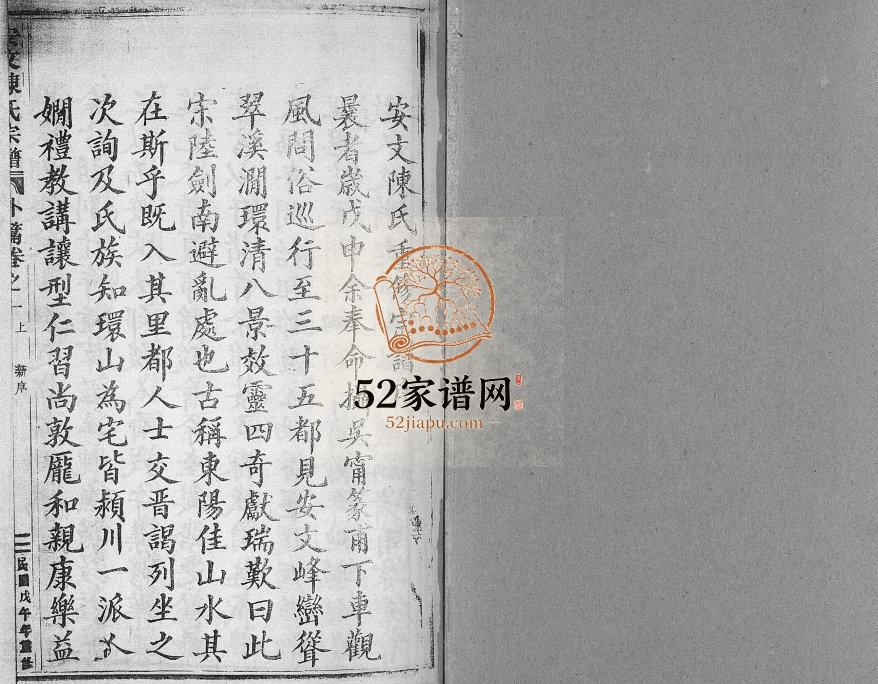 安文陳氏重修宗譜
曩者歲戊申余奉命 吳甯篆甫下車觀
風問俗巡行至三十五都見安文峰巒聳
翠溪澗環清八景效靈四奇獻瑞歎曰此
宋陸劍南避亂處也古稱東陽佳山水其
在斯乎既入其里都人士交晋謁列坐之
次詢及氏族知環山為宅皆潁川一派人
嫻禮教講讓型仁習尚敦厖和親康樂益
安文陳氏宗譜
外篇卷之一上
新序
民國戊午年重修
52家谱网
52jiapu.com